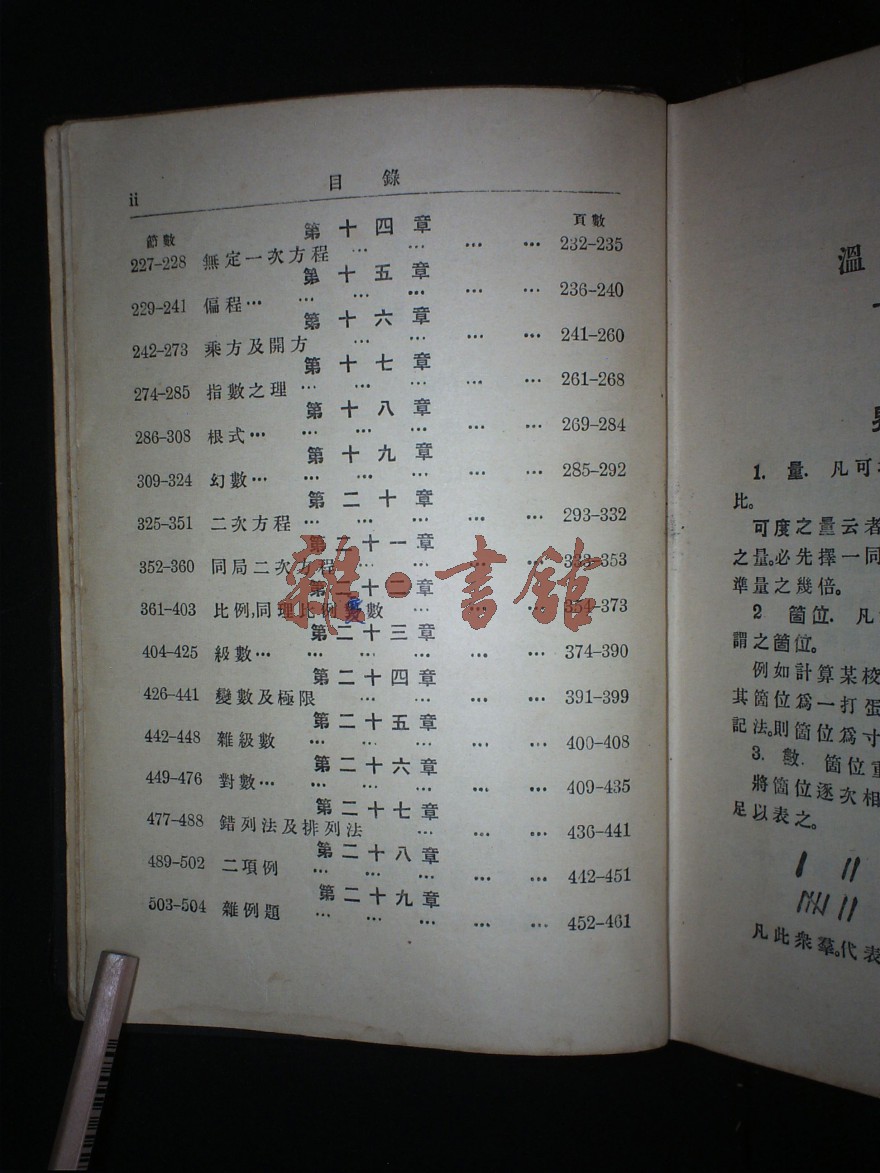 ii 目錄
節數 第十四章 頁數
227–228 無定一次方程 … … … … 232–235
第十五章
229–241 偏程… … … … … … 236–240
第十六章
242–273 乘方及開方 … … … … 241–260
第十七章
274–285 指數之理 … … … … … 261–268
第十八章
286–308 根式… … … … … … 269–284
第十九章
309–324 幻數… … … … … … 285–292
第二十章
325–351 二次方程 … … … … … 293–332
第二十一章
352–360 同局二次方程 … … … … 333–353
第二十二章
361–403 比例,同理比例變數 … … … 354–373
第二十三章
404–425 級數… … … … … … 374–390
第二十四章
426–441 變數及極限 … … … … 391–399
第二十五章
442–448 雜級數 … … … … … 400–408
第二十六章
449–476 對數… … … … … … 409–435
第二十七章
477–488 錯列法及排列法 … … … 436–441
第二十八章
489–502 二項例 … … … … … 442–451
第二十九章
503–504 雜例題 … … … … … 452–461
雜·書館
溫
1. 量. 凡可
比。
可度之量云者
之量。必先擇一同
準量之幾倍。
2 箇位. 凡
謂之箇位。
例如計算某校
其箇位爲一打蛋
記法。則箇位爲寸
3. 數. 箇位重
將箇位逐次相
足以表之。
凡此衆羣。代表